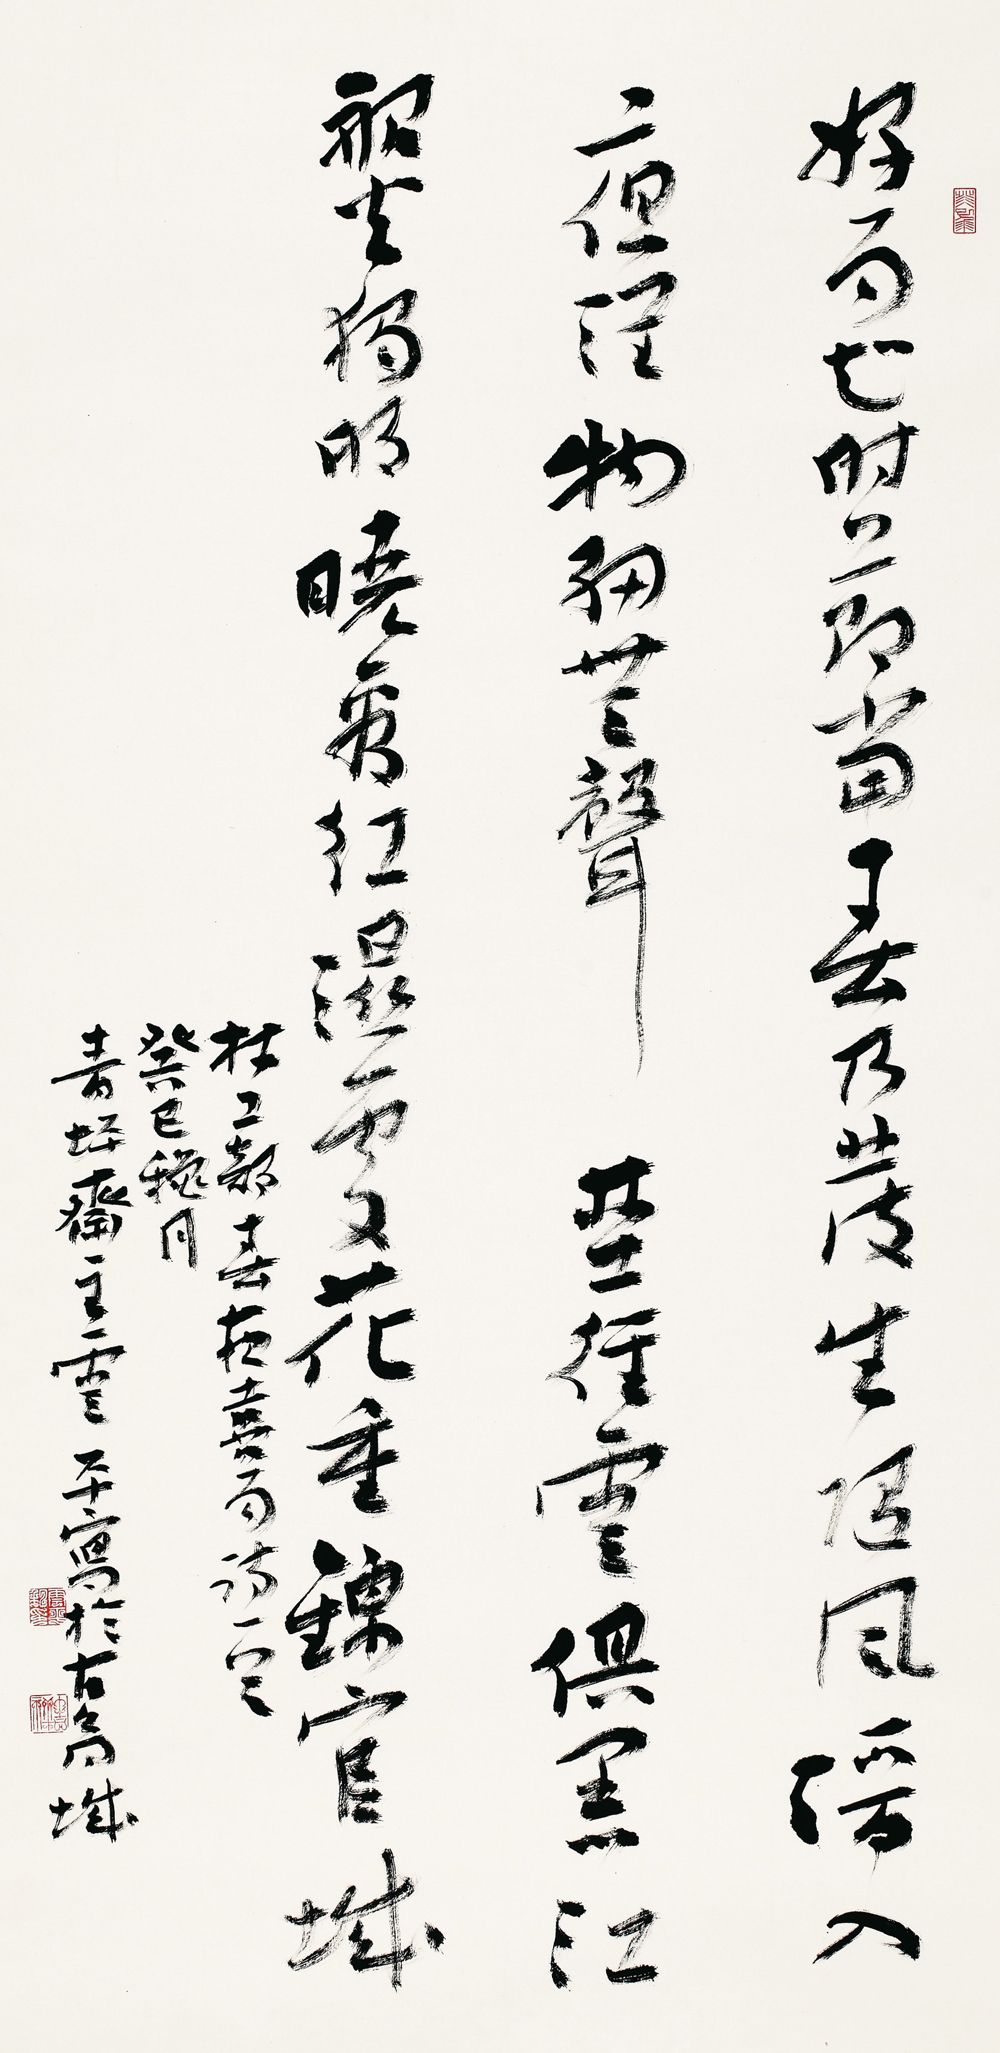 好雨知時節當春乃發生隨風潛入
夜潤物細無聲野徑雲俱黑江
船火獨明曉看紅濕處花重錦官城
杜工部春夜喜雨詩一首
癸巳穐月
青坪齋主雲平寫於古城